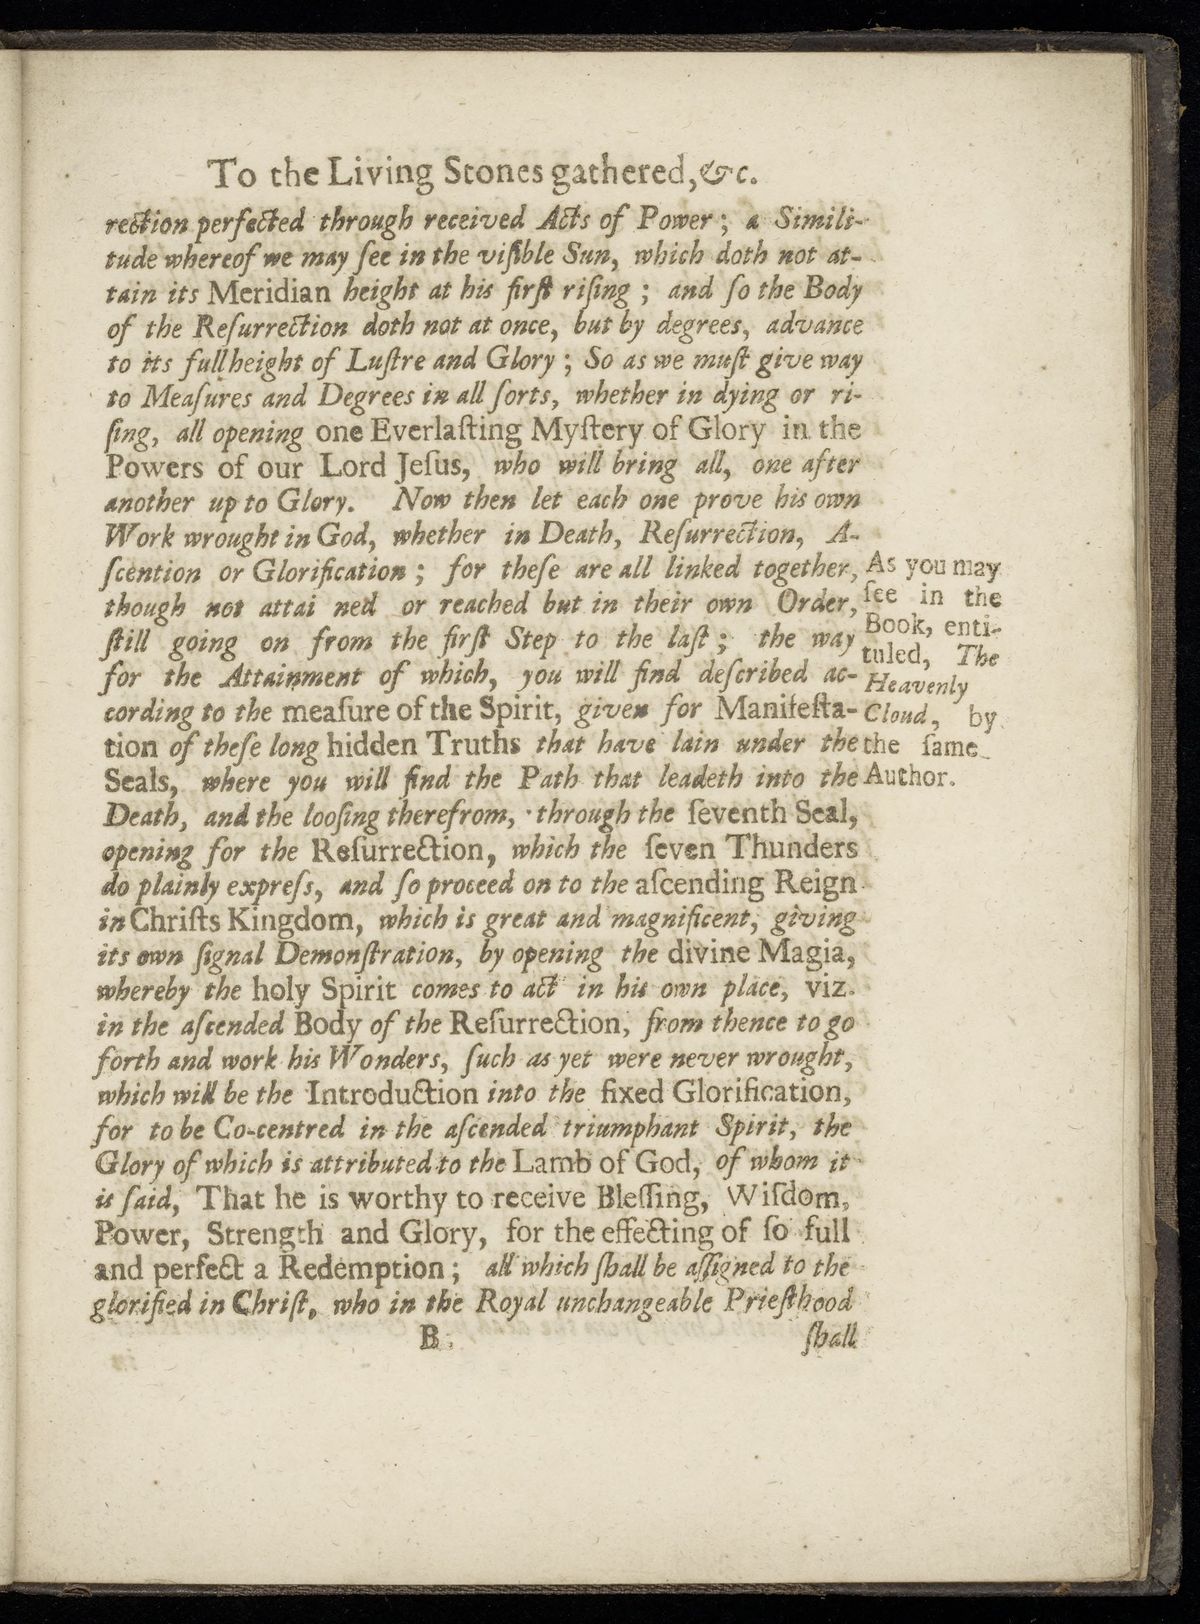 To the Living Stones gathered, &c.
rection perfected through received Acts of Power; a Simili-
tude whereof we may ſee in the viſible Sun, which doth not at-
tain its Meridian height at his firſt riſing; and ſo the Body
of the Reſurrection doth not at once, but by degrees, advance
to its full height of Luſtre and Glory; So as we muſt give way
to Meaſures and Degrees in all ſorts, whether in dying or ri-
ſing, all opening one Everlaſting Myſtery of Glory in the
Powers of our Lord Jeſus, who will bring all, one after
another up to Glory. Now then let each one prove his own
Work wrought in God, whether in Death, Reſurrection, A-
ſcention or Glorification; for theſe are all linked together,
though not attai ned or reached but in their own Order,
ſtill going on from the firſt Step to the laſt; the way
for the Attainment of which, you will find deſcribed ac-
cording to the meaſure of the Spirit, given for Manifeſta-
tion of theſe long hidden Truths that have lain under the
Seals, where you will find the Path that leadeth into the
Death, and the looſing therefrom, through the ſeventh Seal,
opening for the Reſurrection, which the ſeven Thunders
do plainly expreſs, and ſo proceed on to the aſcending Reign
in Chriſts Kingdom, which is great and magnificent, giving
its own ſignal Demonſtration, by opening the divine Magia,
whereby the holy Spirit comes to act in his own place, viz.
in the aſcended Body of the Reſurrection, from thence to go
forth and work his Wonders, ſuch as yet were never wrought,
which will be the Introduction into the fixed Glorification,
for to be Co-centred in the aſcended triumphant Spirit, the
Glory of which is attributed to the Lamb of God, of whom it
is ſaid, That he is worthy to receive Bleſſing, Wiſdom,
Power, Strength and Glory, for the effecting of ſo full
and perfect a Redemption; all which ſhall be aſſigned to the
glorified in Chriſt, who in the Royal unchangeable Prieſthood
B
ſhall
As you may
ſee in the
Book, enti-
tuled, The
Heavenly
Cloud, by
the ſame
Author.